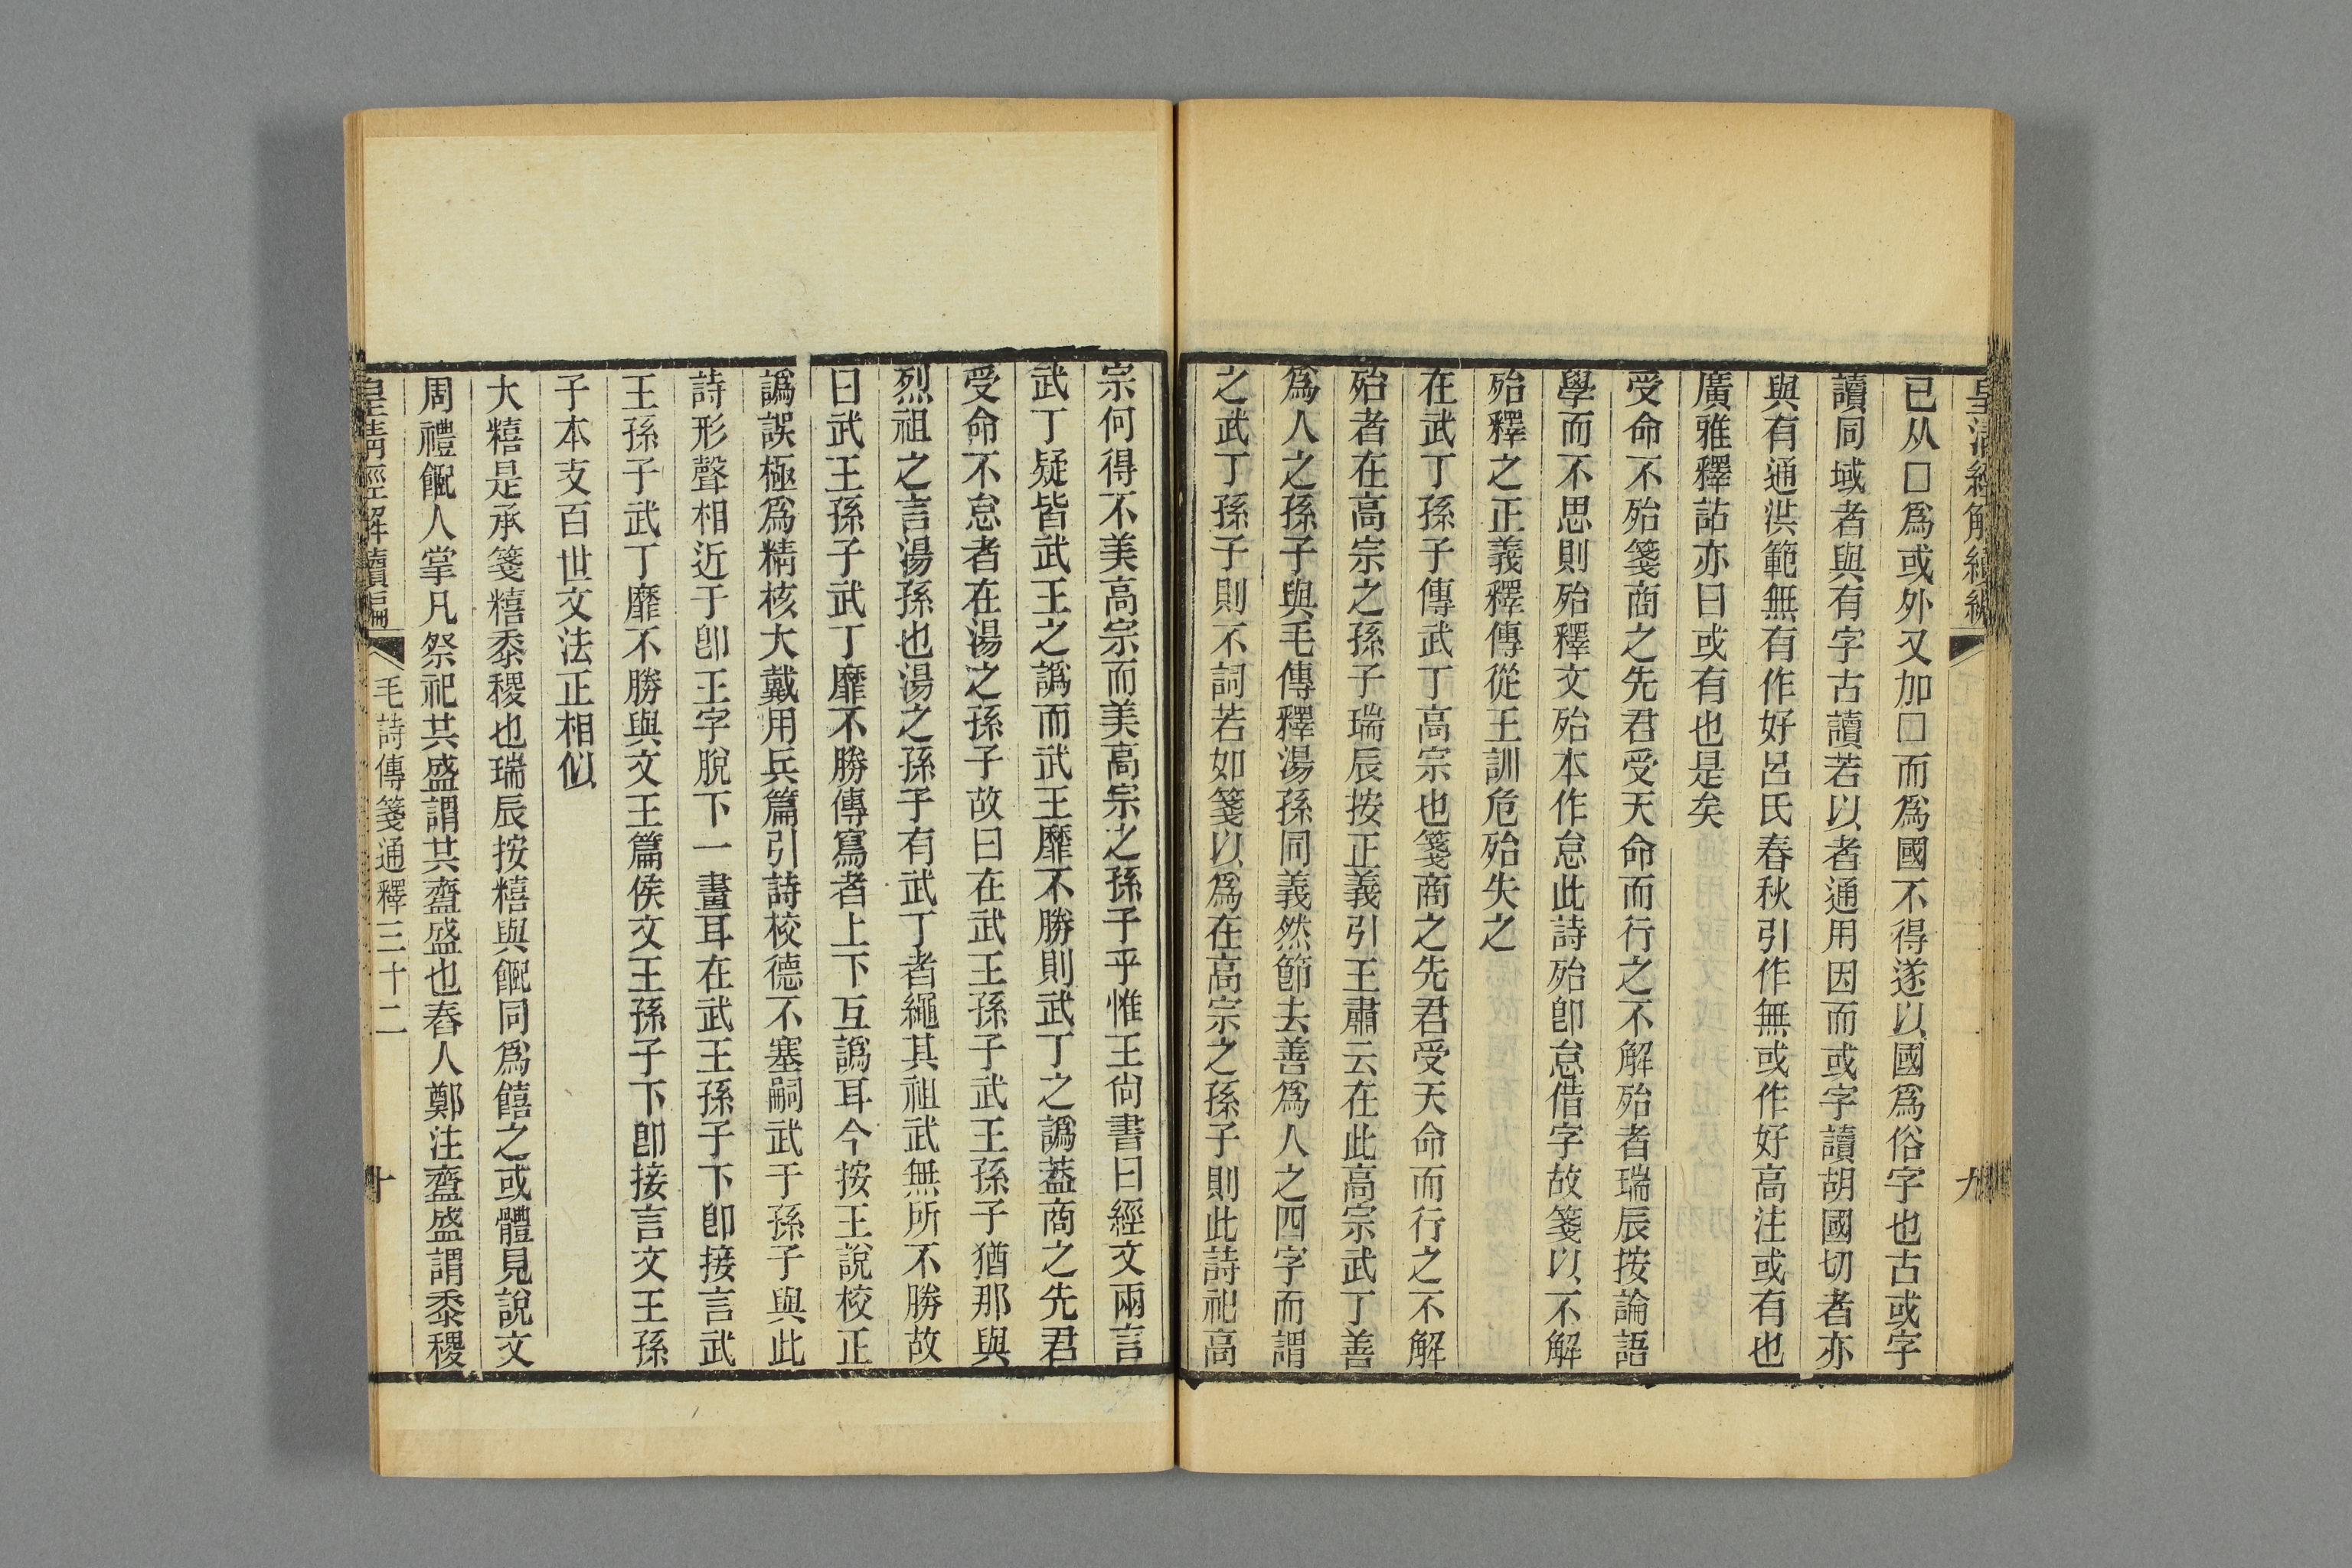 皇清經解續編
九
已从囗爲或外又加囗而爲國不得遂以國爲俗字也古或字
讀同域者與有字古讀若以者通用因而或字讀胡國切者亦
與有通洪範無有作好呂氏春秋引作無或作好高注或有也
廣雅釋詁亦曰或有也是矣
受命不殆箋商之先君受天命而行之不解殆者瑞辰按論語
學而不思則殆釋文殆本作怠此詩殆卽怠借字故箋以不解
殆釋之正義釋傳從王訓危殆失之
在武丁孫子傳武丁高宗也箋商之先君受天命而行之不解
殆者在高宗之孫子瑞辰按正義引王肅云在此高宗武丁善
爲人之孫子與毛傳釋湯孫同義然節去善爲人之四字而謂
之武丁孫子則不詞若如箋以爲在高宗之孫子則此詩祀高
宗何得不美高宗而美高宗之孫子乎惟王尙書曰經文兩言
武丁疑皆武王之譌而武王靡不勝則武丁之譌蓋商之先君
受命不怠者在湯之孫子故曰在武王孫子武王孫子猶那與
烈祖之言湯孫也湯之孫子有武丁者繩其祖武無所不勝故
曰武王孫子武丁靡不勝傳寫者上下互譌耳今按王說校正
譌誤極爲精核大戴用兵篇引詩校德不塞嗣武于孫子與此
詩形聲相近于卽王字脫下一畫耳在武王孫子下卽接言武
王孫子武丁靡不勝與文王篇侯文王孫子下卽接言文王孫
子本支百世文法正相似
大糦是承箋糦黍稷也瑞辰按糦與饎同爲饎之或體見說文
周禮饎人掌凡祭祀共盛謂共齍盛也舂人鄭注齍盛謂黍稷
皇清經解續編
毛詩傳箋通釋三十二
十